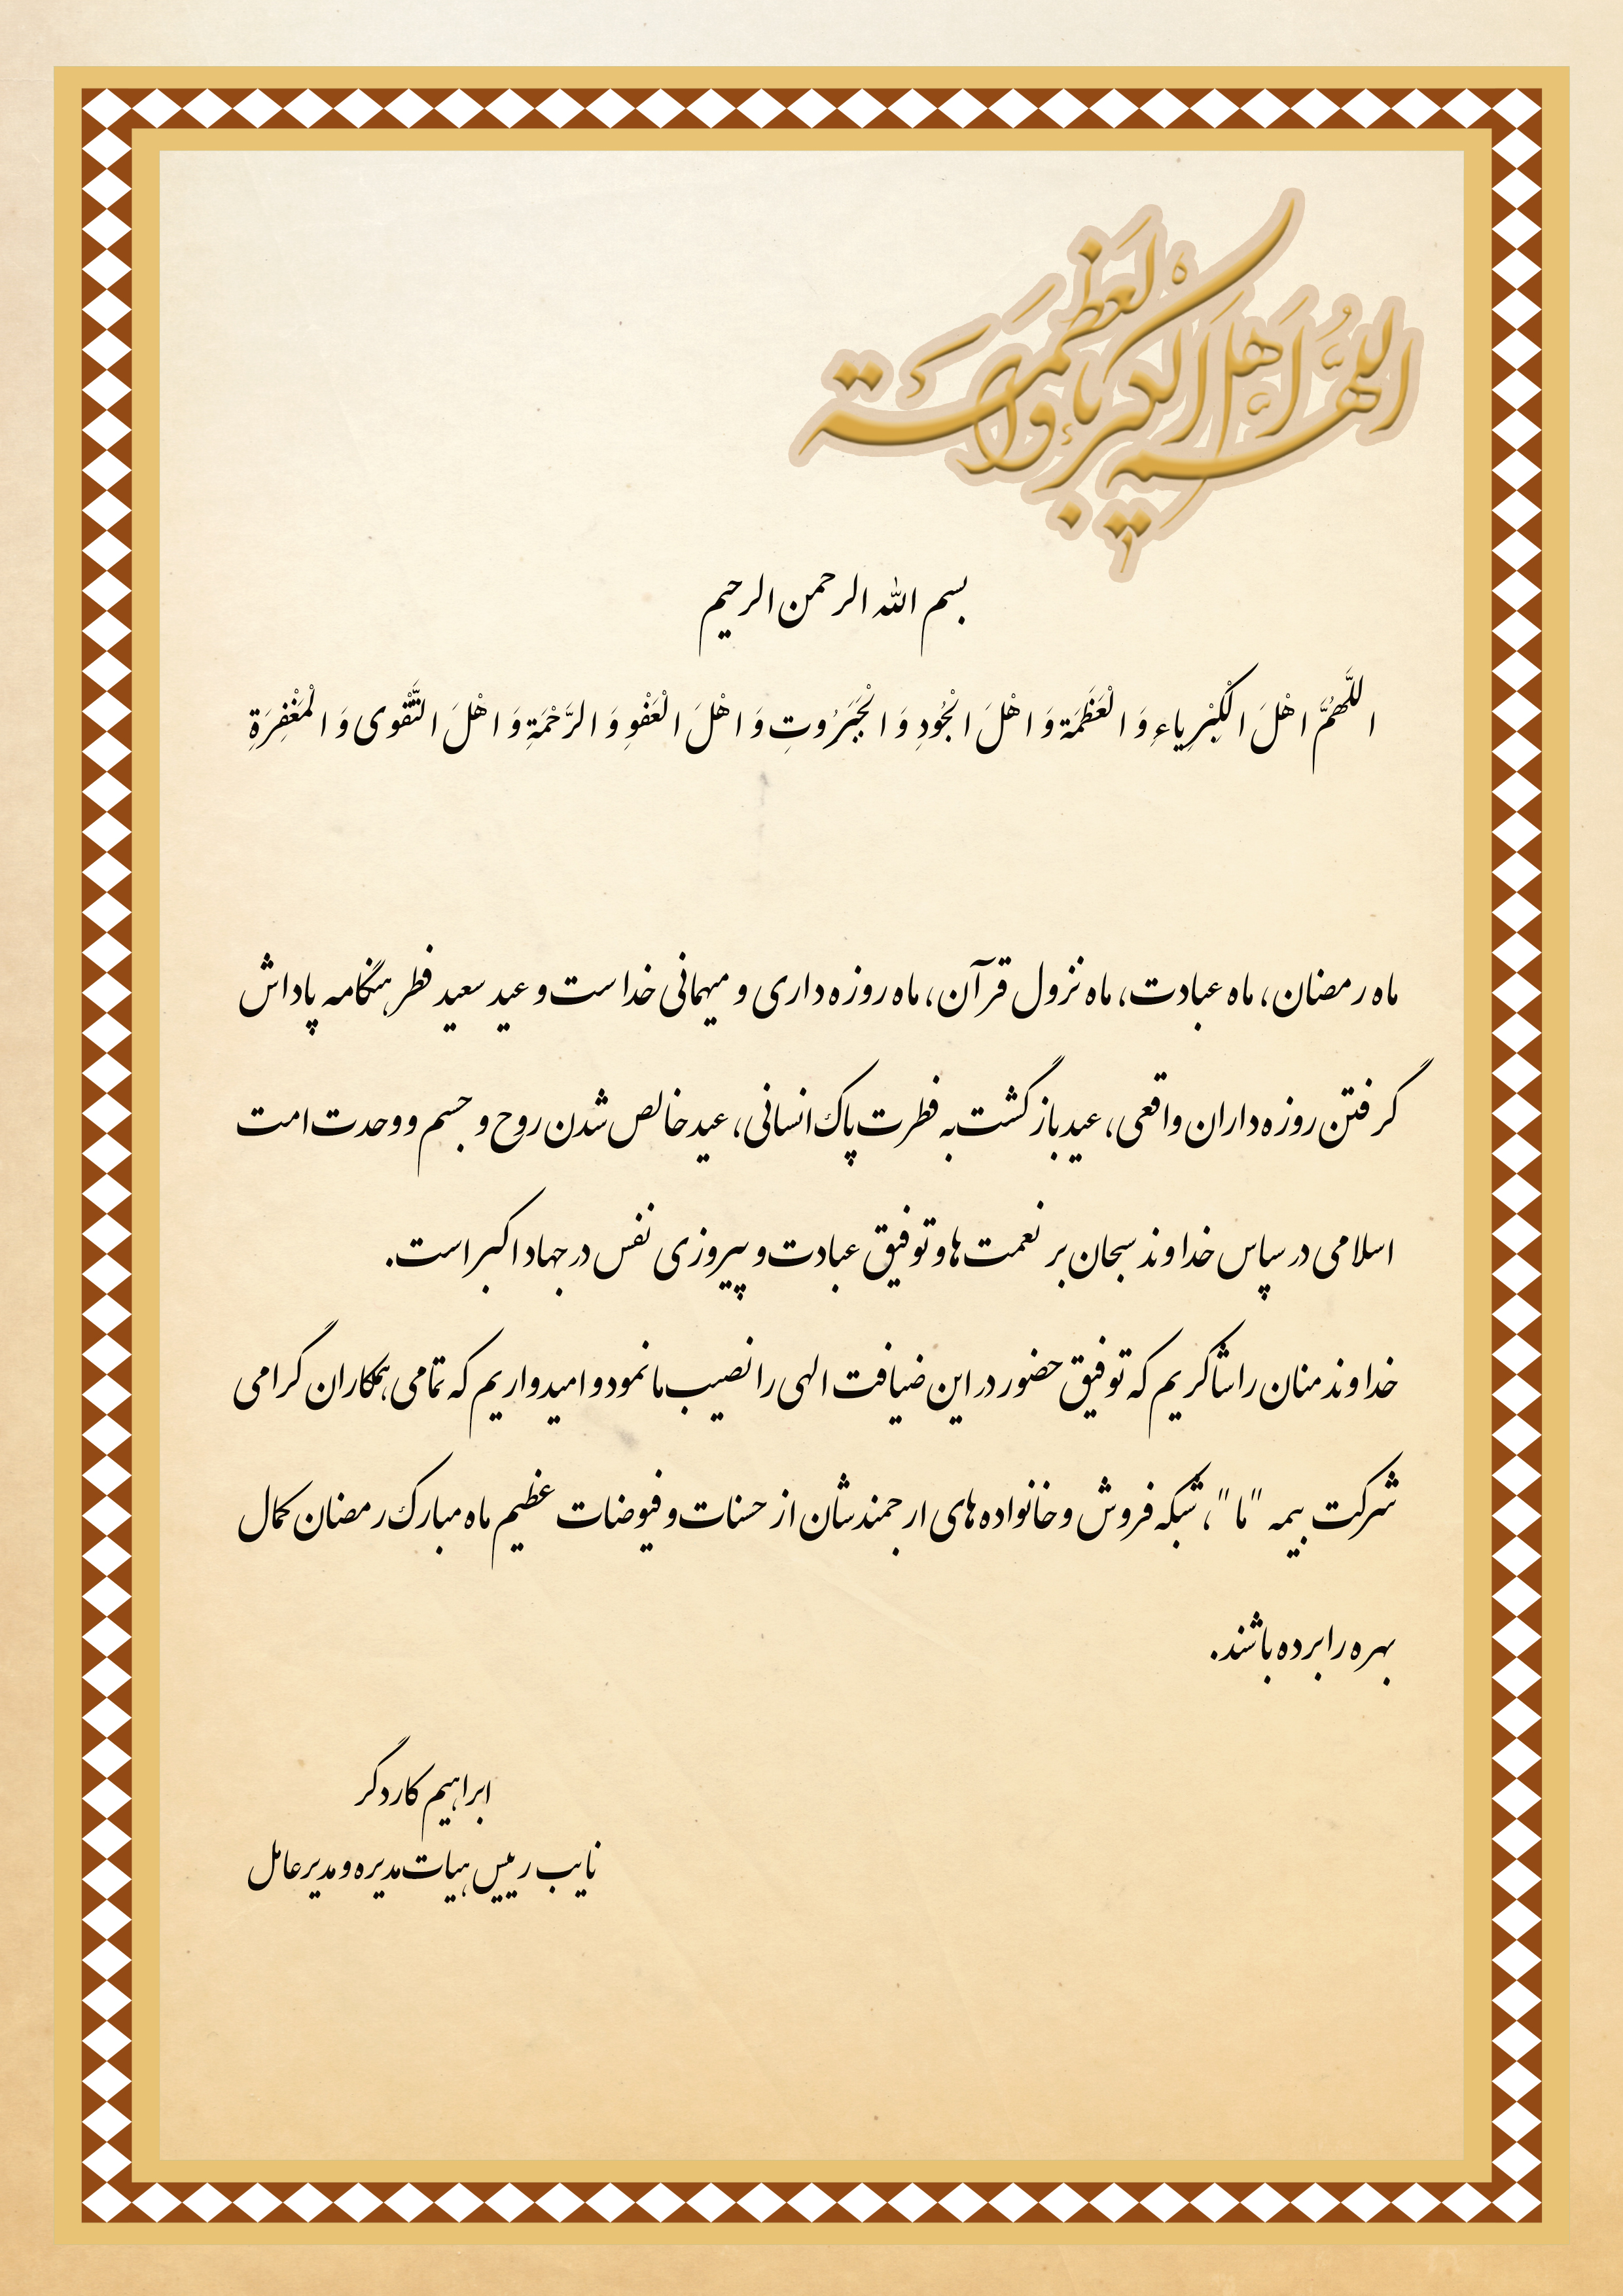 اللهم اهل الکبریاء والعظمة
بسم الله الرحمن الرحیم
اللَّهُمَّ اهْلَ الْکِبْرِیاءِ وَ الْعَظَمَةِ وَ اهْلَ الْجُودِ وَ الْجَبَرُوتِ وَ اهْلَ الْعَفْوِ وَ الرَّحْمَةِ وَ اهْلَ التَّقْوی وَ الْمَغْفِرَةِ
ماه رمضان، ماه عبادت، ماه نزول قرآن، ماه روزه داری و میهمانی خداست و عید سعید فطر هنگامه پاداش
گرفتن روزه داران واقعی، عید بازگشت به فطرت پاک انسانی، عید خالص شدن روح و جسم و وحدت امت
اسلامی در سپاس خداوند سبحان بر نعمت ها و توفیق عبادت و پیروزی نفس در جهاد اکبر است.
خداوند منان را شاکریم که توفیق حضور در این ضیافت الهی را نصیب ما نمود و امیدواریم که تمامی همکاران گرامی
شرکت بیمه "ما"، شبکه فروش و خانواده های ارجمندشان از حسنات و فیوضات عظیم ماه مبارک رمضان کمال
بهره را برده باشند.
ابراهیم کاردگر
نایب رییس هیات مدیره و مدیرعامل